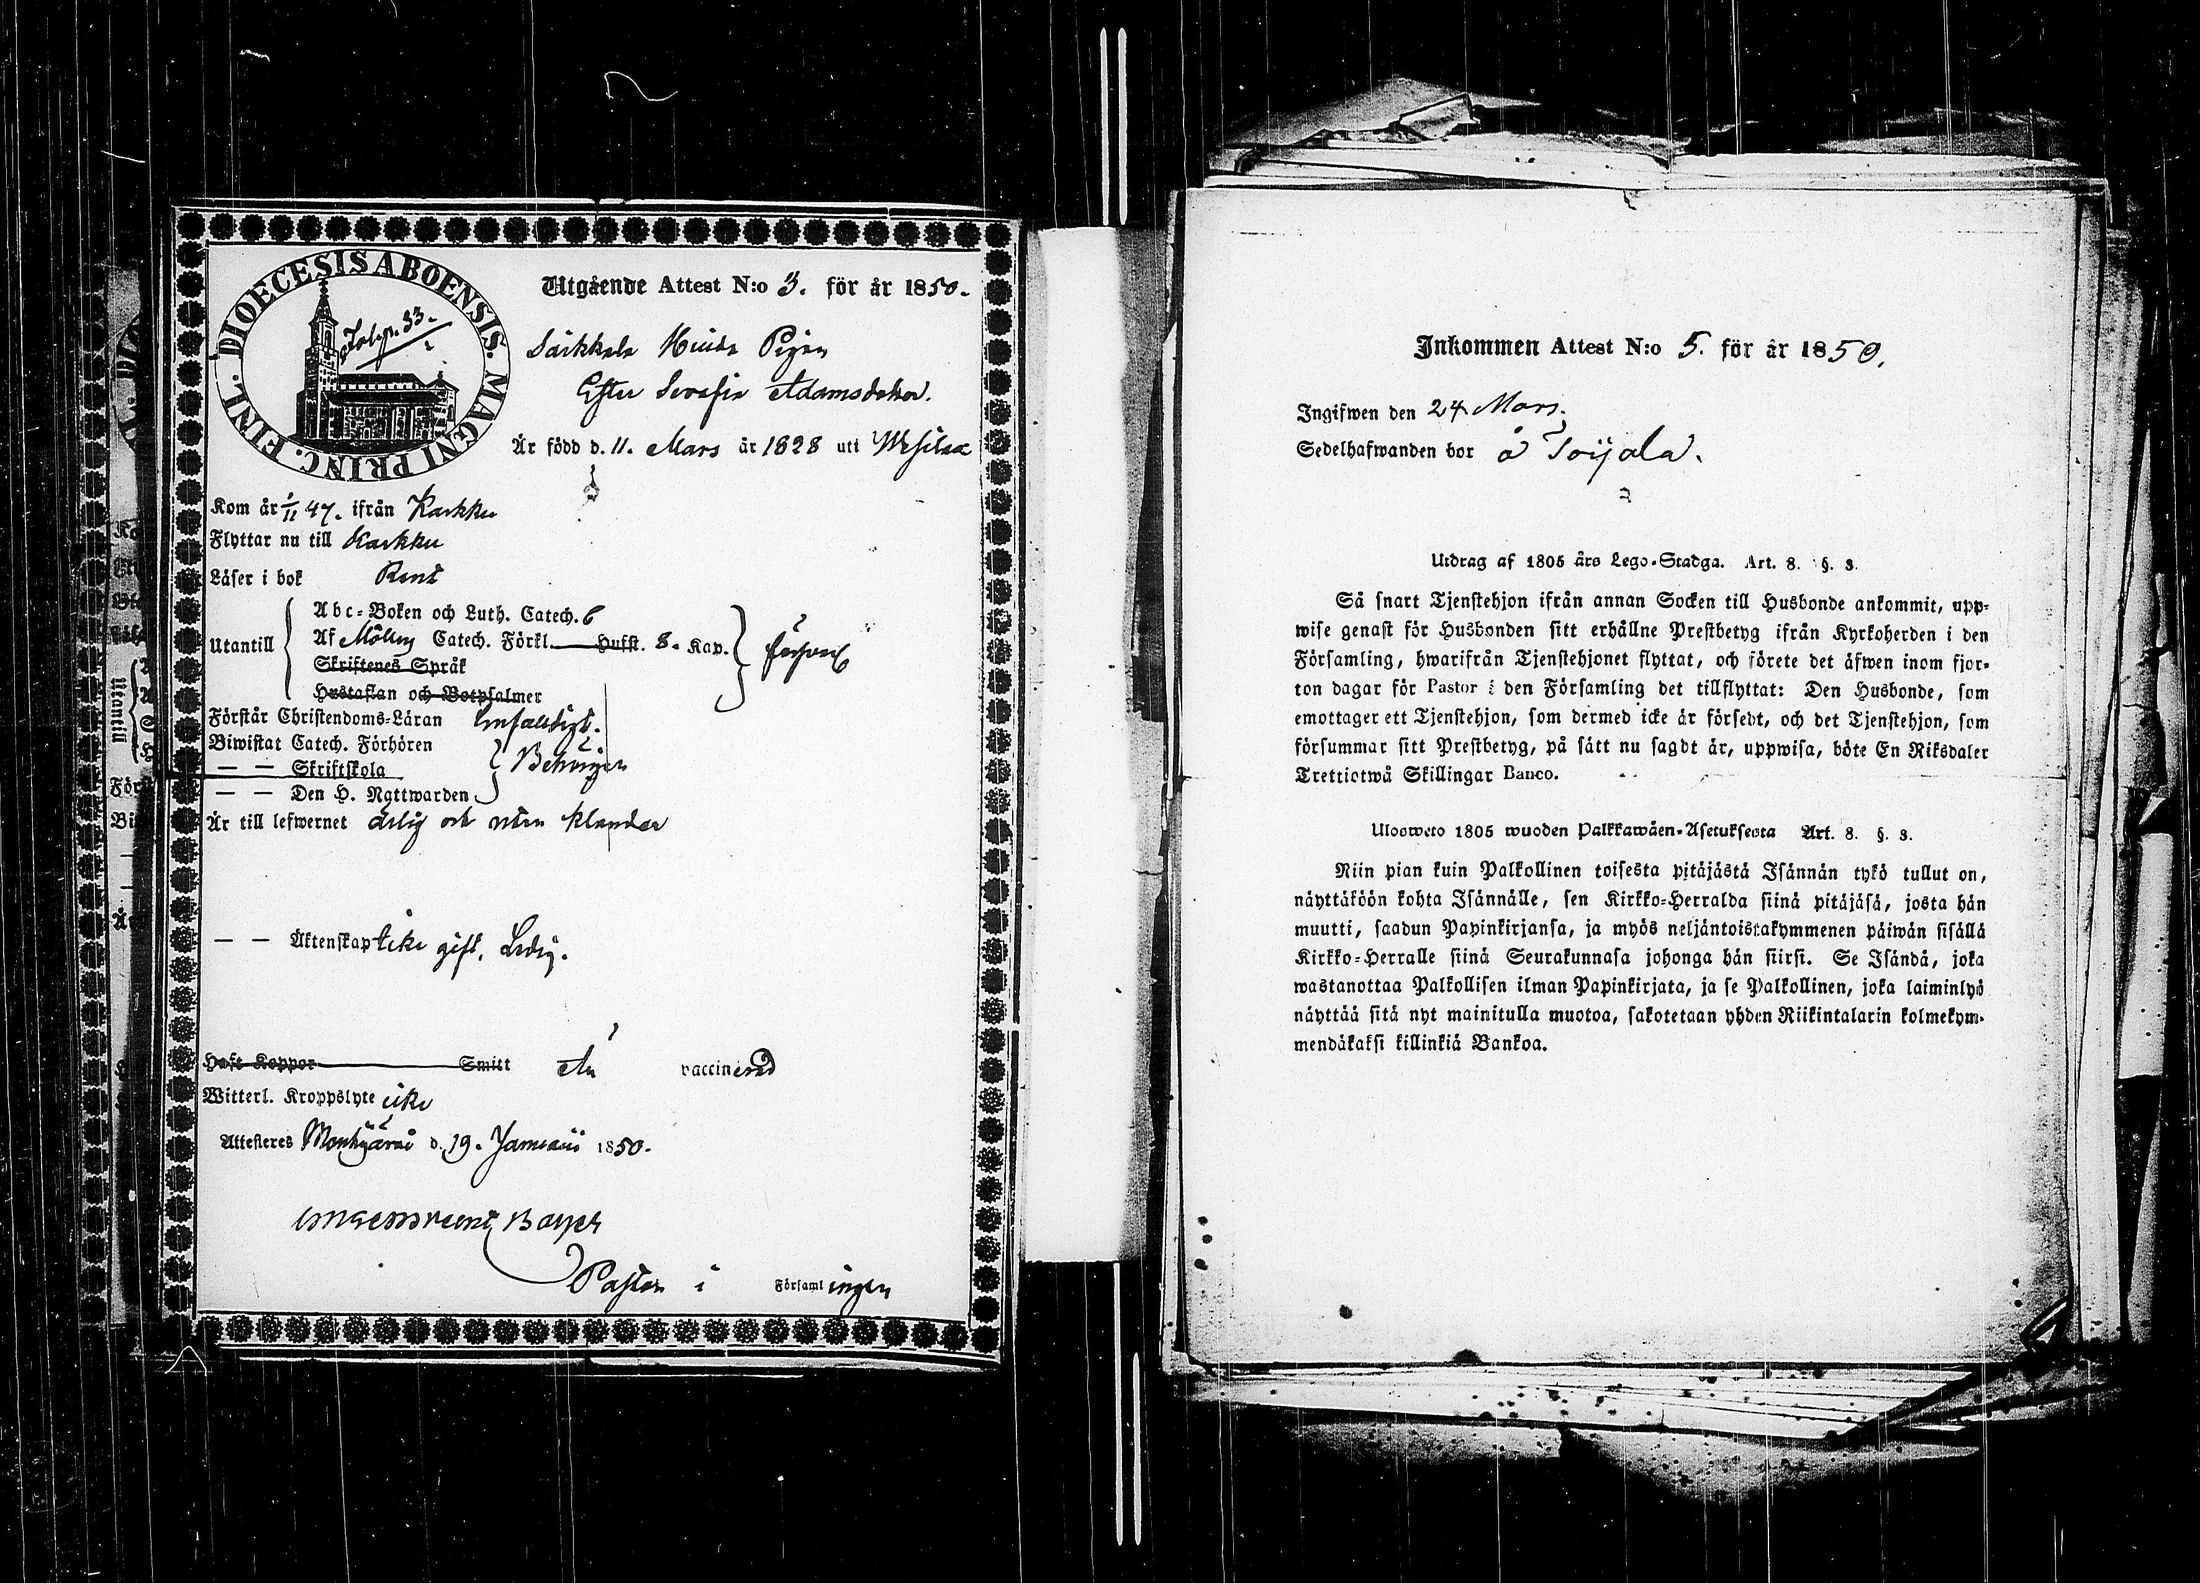 DIOECESIS ABOENSIS. MAGNI PRINC. FINL.
Fol. p. 33.
Utgående Attest N:o 3. för år 1850.
Pigan
Ester Serafia Adamsdotter.
Är född d. 11. Mars år 1828 uti Wesilax
Kom år 1/11 47. ifrån Karkku
Flyttar nu till Karkku
Läser i bok Rent
Utantill
Abc-Boken och Luth. Catech. 6
Af Catech. Förkl. Husst. 8. Kap.
Skriftenes Språk
Hustaflan och Botpsalmer
Förstår Christendoms-Läran Enfaldigt.
Biwistat Catech. Förhören
— — Skriftskola
— — Den H. Nattwarden
Behörigen
Är till lefwernet ärlig och utan klander
— — Äktenskap icke gift. Ledig.
Haft Koppor Smitt Är vaccinerad
Witterl. Kroppslyte icke
Attesteres Mouhijärvi d. 19. Januarii 1850.
Pastor i Församlingen
Inkommen Attest N:o 5. för år 1850.
Ingifwen den 24 Mars.
Sedelhafwanden bor å Toijala.
Utdrag af 1805 års Lego-Stadga. Art. 8. §. 3.
Så snart Tjenstehjon ifrån annan Socken till Husbonde ankommit, upp-
wise genast för Husbonden sitt erhållne Prestbetyg ifrån Kyrkoherden i den
Församling, hwarifrån Tjenstehjonet flyttat, och förete det äfwen inom fjor-
ton dagar för Pastor i den Församling det tillflyttat: Den Husbonde, som
emottager ett Tjenstehjon, som dermed icke är försedt, och det Tjenstehjon, som
försummar sitt Prestbetyg, på sätt nu sagdt är, uppwisa, böte En Riksdaler
Trettiotwå Skillingar Banco.
Ulosweto 1805 wuoden Palkkawäen-Asetuksesta Art. 8. §. 3.
Niin pian kuin Palkollinen toisesta pitäjästä Isännän tykö tullut on,
näyttäköön kohta Isännälle, sen Kirkko-Herralda siinä pitäjäsä, josta hän
muutti, saadun Papinkirjansa, ja myös neljäntoistakymmenen päiwän sisällä
Kirkko-Herralle siinä Seurakunnasa johonga hän siirsi. Se Isändä, joka
wastanottaa Palkollisen ilman Papinkirjata, ja se Palkollinen, joka laiminlyö
näyttää sitä nyt mainitulla muotoa, sakotetaan yhden Riikintalarin kolmekym-
mendäkaksi killinkiä Bankoa.